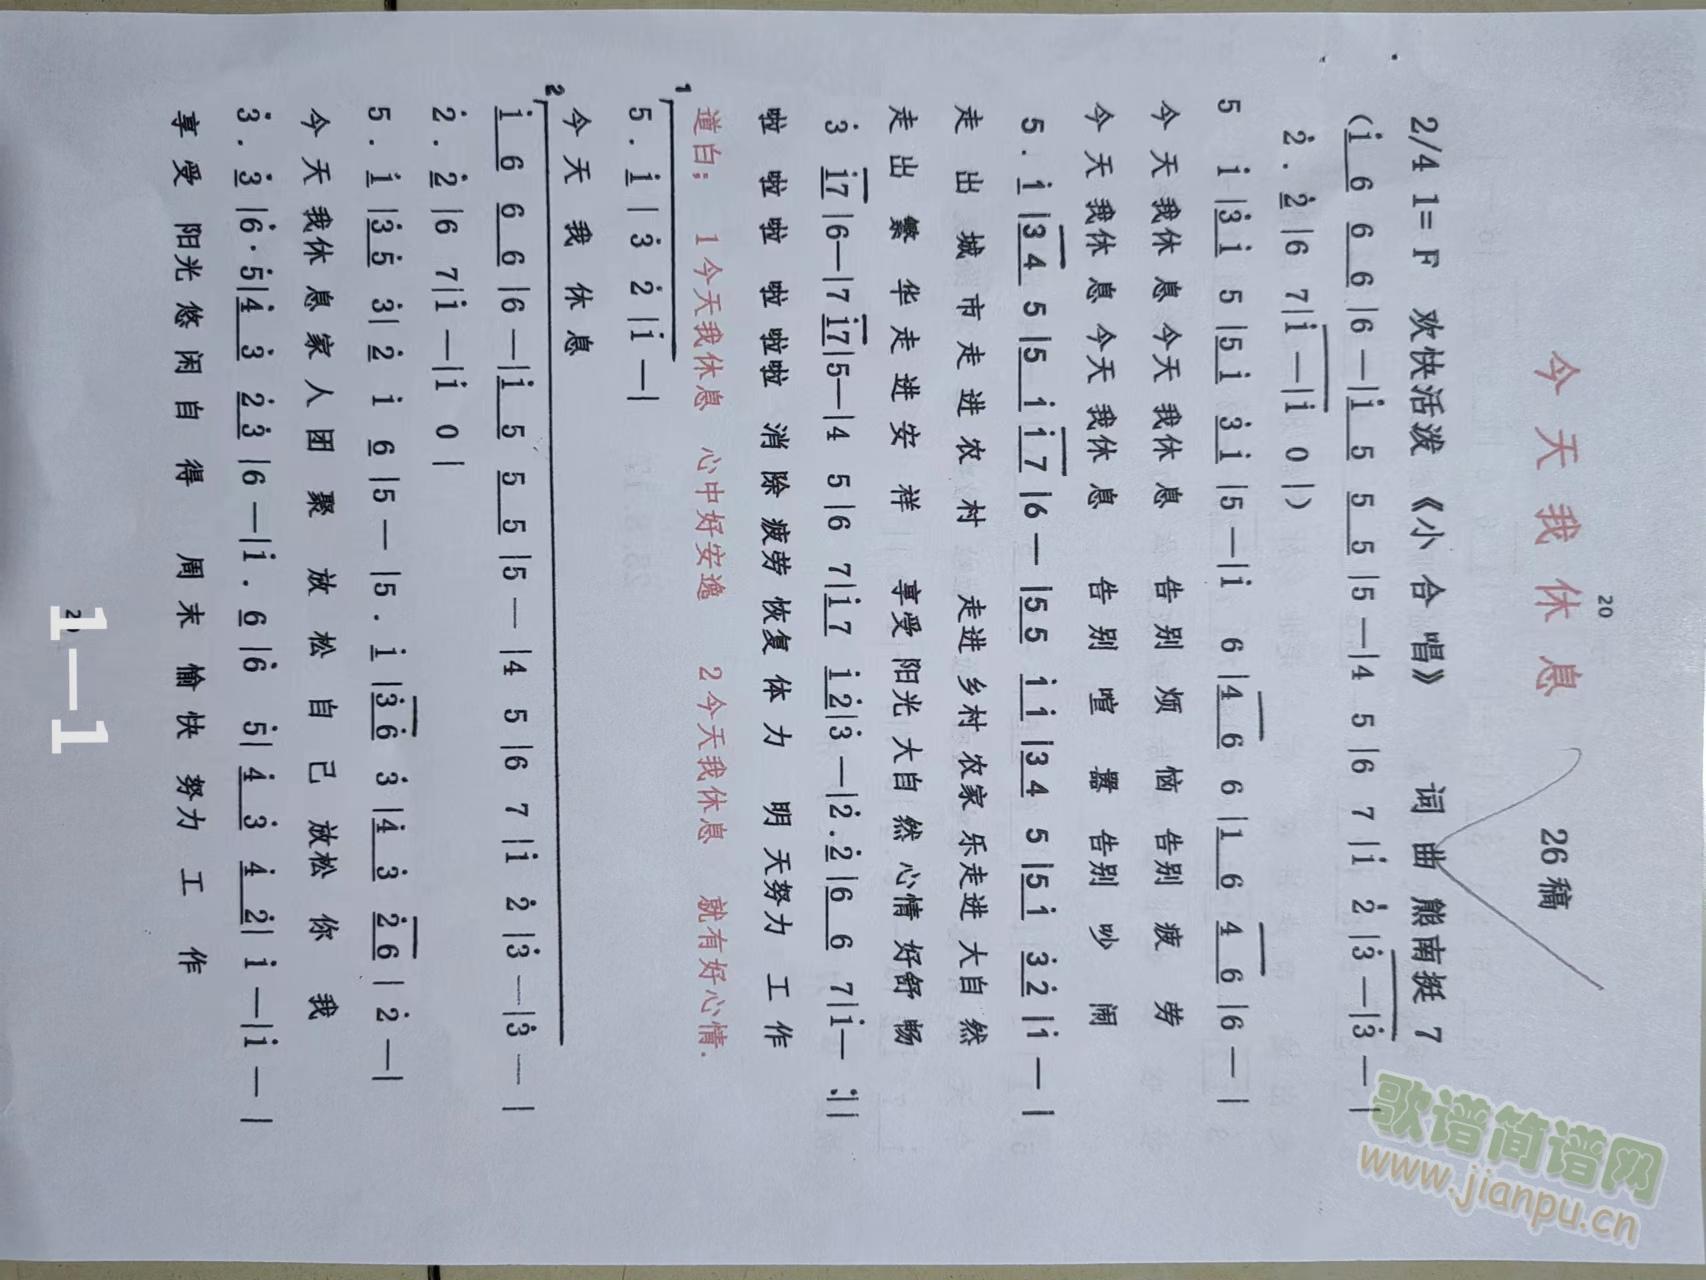 20
今天我休息 26稿
2/4 1=F 欢快活泼 《小合唱》 词曲 熊南挺 7
(i̇ 6 6 6 |6 —|i̇ 5 5 5 |5 —|4 5 |6 7 |i̇ 2̇ |3̇ —|3̇ — |
2̇ . 2̇ |6 7|i̇ —|i̇ 0 |)
5 i̇ |3̇ i̇ 5 |5 i̇ 3̇ i̇ |5 —|i̇ 6 |4 6 6 |1 6 4 6 |6 — |
今天我休息今天我休息 告别烦恼告别疲劳
今天我休息今天我休息 告别喧嚣告别吵闹
5 . i̇ |3 4 5 |5 i̇ i̇ 7 |6 — |5 5 i̇ i̇ |3 4 5 |5 i̇ 3̇ 2̇ |i̇ — |
走出城市走进农村 走进乡村农家乐走进大自然
走出繁华走进安祥 享受阳光大自然心情好舒畅
3̇ i̇7 |6—|7 i̇7|5—|4 5 |6 7|i̇ 7 i̇ 2̇|3̇ —|2̇ . 2̇ |6 6 7|i̇— :||
啦啦啦啦啦啦 消除疲劳恢复体力 明天努力工作
道白: 1今天我休息 心中好安逸 2今天我休息 就有好心情.
1
5 . i̇ | 3̇ 2̇ |i̇ —|
今天我休息
2
i̇ 6 6 6 |6 —|i̇ 5 5 5 |5 — |4 5 |6 7 |i̇ 2̇ |3̇ —|3̇ — |
2̇ . 2̇ |6 7|i̇ —|i̇ 0 |
5 . i̇ |3̇ 5 3̇| 2̇ i̇ 6 |5 — |5 . i̇ |3̇ 6 3̇ |4̇ 3̇ 2̇ 6 | 2̇ —|
今天我休息家人团聚 放松自己放松你我
3̇ . 3̇ |6̇ . 5̇|4̇ 3̇ 2̇ 3̇ |6 —|i̇ . 6 |6̇ 5̇| 4̇ 3̇ 4̇ 2̇| i̇ —|i̇ — |
享受阳光悠闲自得 周末愉快努力工作
1—1
歌谱简谱网
www.jianpu.cn